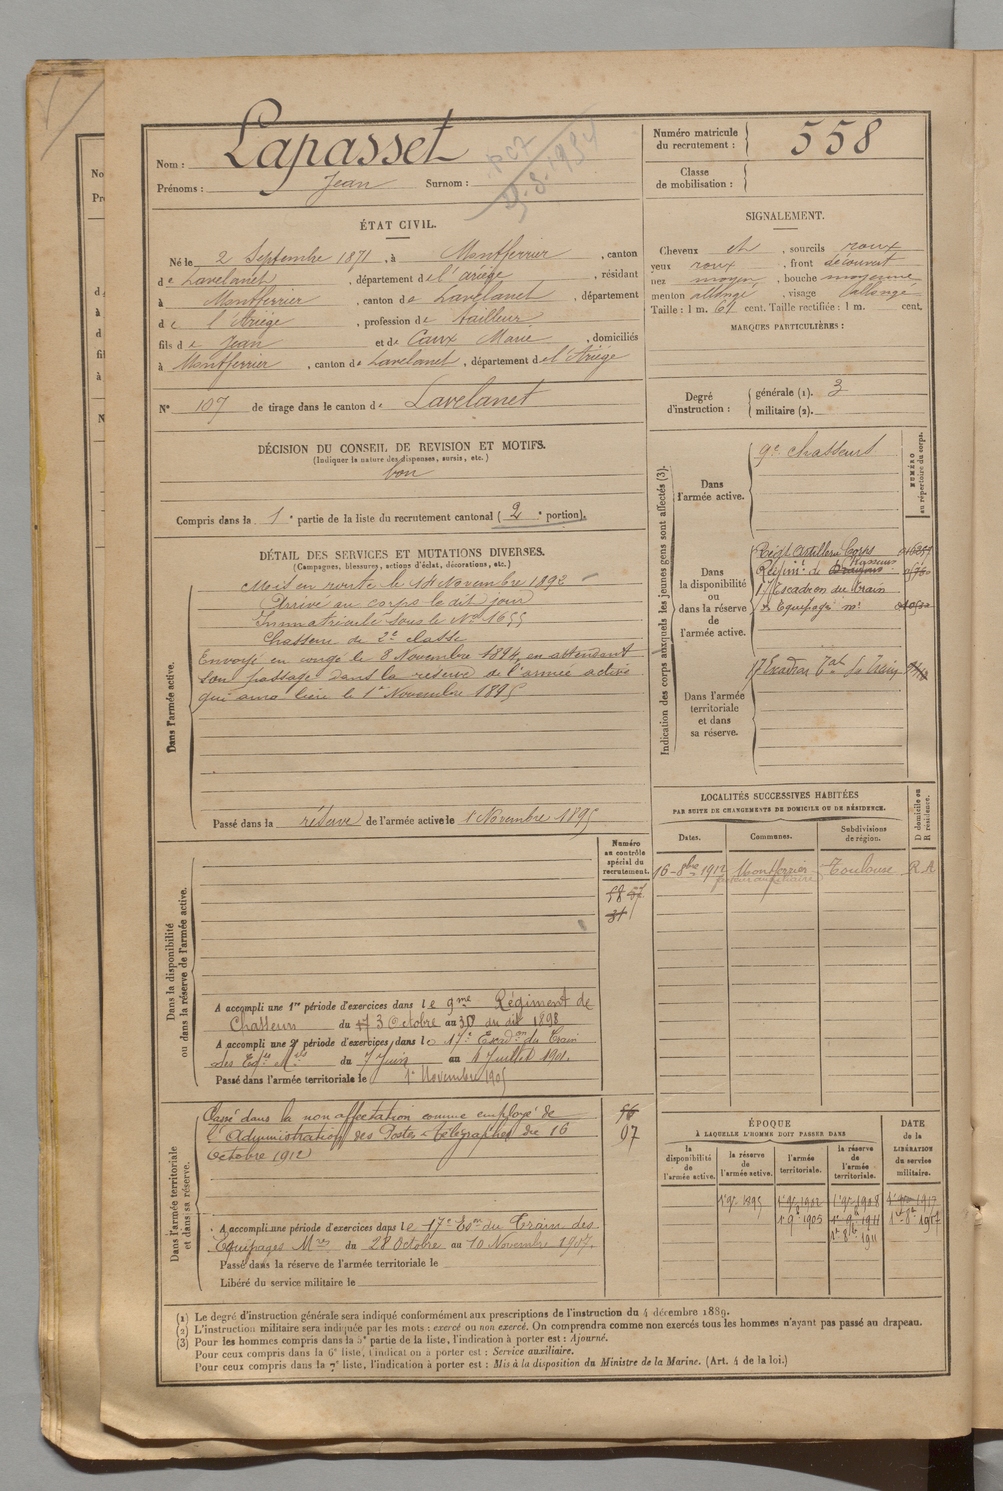 Nom : Lapasset
Prénoms : Jean Surnom :
Numéro matricule du recrutement : 558
Classe de mobilisation :
ÉTAT CIVIL.
Né le 2 Septembre 1871, à Montferrier, canton
de Lavelanet, département de l'ariège, résidant
à Montferrier, canton de Lavelanet, département
de l'Ariège, profession de tailleur
fils de Jean et de Caux Marie, domiciliés
à Montferrier, canton de Lavelanet, département de l'Ariège
N° 107 de tirage dans le canton de Lavelanet
SIGNALEMENT.
Cheveux et, sourcils roux
yeux roux, front découvert
nez moyen, bouche moyenne
menton allongé, visage allongé
Taille : 1 m. 61 cent. Taille rectifiée : 1 m. cent.
MARQUES PARTICULIÈRES :
Degré d'instruction : générale (1). 3
militaire (2).
DÉCISION DU CONSEIL DE REVISION ET MOTIFS.
(Indiquer la nature des dispenses, sursis, etc.)
bon
Compris dans la 1e partie de la liste du recrutement cantonal (2e portion).
DÉTAIL DES SERVICES ET MUTATIONS DIVERSES.
(Campagnes, blessures, actions d'éclat, décorations, etc.)
Dans l'armée active.
Mis en route le 14 Novembre 1892
Arrivé au corps le dit jour
Immatriculé sous le No 1655
Chasseur de 2e classe
Envoyé en congé le 8 Novembre 1894, en attendant
son passage dans la réserve de l'armée active
qui aura lieu le 1er Novembre 1895
Passé dans la réserve de l'armée active le 1 Novembre 1895
Indication des corps auxquels les jeunes gens sont affectés (3).
NUMÉRO au répertoire du corps.
Dans l'armée active.
9e Chasseurs
Dans la disponibilité ou dans la réserve de l'armée active.
Régt Artillerie Corps
Régimt de Dragons Chasseurs
17 Escadron du Train
des Equipages Mres
Dans l'armée territoriale et dans sa réserve.
17 Escadron du Train
LOCALITÉS SUCCESSIVES HABITÉES
PAR SUITE DE CHANGEMENTS DE DOMICILE OU DE RÉSIDENCE.
Dates. Communes. Subdivisions de région. D domicile ou R résidence.
16-8bre 1912 Montferrier Toulouse R
facteur auxiliaire
Dans la disponibilité ou dans la réserve de l'armée active.
Numéro au contrôle spécial du recrutement.
58
31
A accompli une 1re période d'exercices dans le 9me Régiment de
Chasseurs du 3 Octobre au 30 du dit 1898
A accompli une 2e période d'exercices dans le 17e Escdon du Train
des Eqes Mres du 7 Juin au 4 Juillet 1901
Passé dans l'armée territoriale le 1er Novembre 1905
Dans l'armée territoriale et dans sa réserve.
Passé dans la non affectation comme employé de
l'Administration des Postes & télégraphes du 16
Octobre 1912
56
97
A accompli une période d'exercices dans le 17e Eson du Train des
Equipages Mres du 28 Octobre au 10 Novembre 1907.
Passé dans la réserve de l'armée territoriale le
Libéré du service militaire le
ÉPOQUE
À LAQUELLE L'HOMME DOIT PASSER DANS
la disponibilité de l'armée active. la réserve de l'armée active. l'armée territoriale. la réserve de l'armée territoriale.
DATE de la LIBÉRATION du service militaire.
1er 9bre 1895
1er 9bre 1905 1er 9bre 1911
1er 8bre 1911
(1) Le degré d'instruction générale sera indiqué conformément aux prescriptions de l'instruction du 4 décembre 1889.
(2) L'instruction militaire sera indiquée par les mots : exercé ou non exercé. On comprendra comme non exercés tous les hommes n'ayant pas passé au drapeau.
(3) Pour les hommes compris dans la 5e partie de la liste, l'indication à porter est : Ajourné.
Pour ceux compris dans la 6e liste, l'indication à porter est : Service auxiliaire.
Pour ceux compris dans la 7e liste, l'indication à porter est : Mis à la disposition du Ministre de la Marine. (Art. 4 de la loi.)